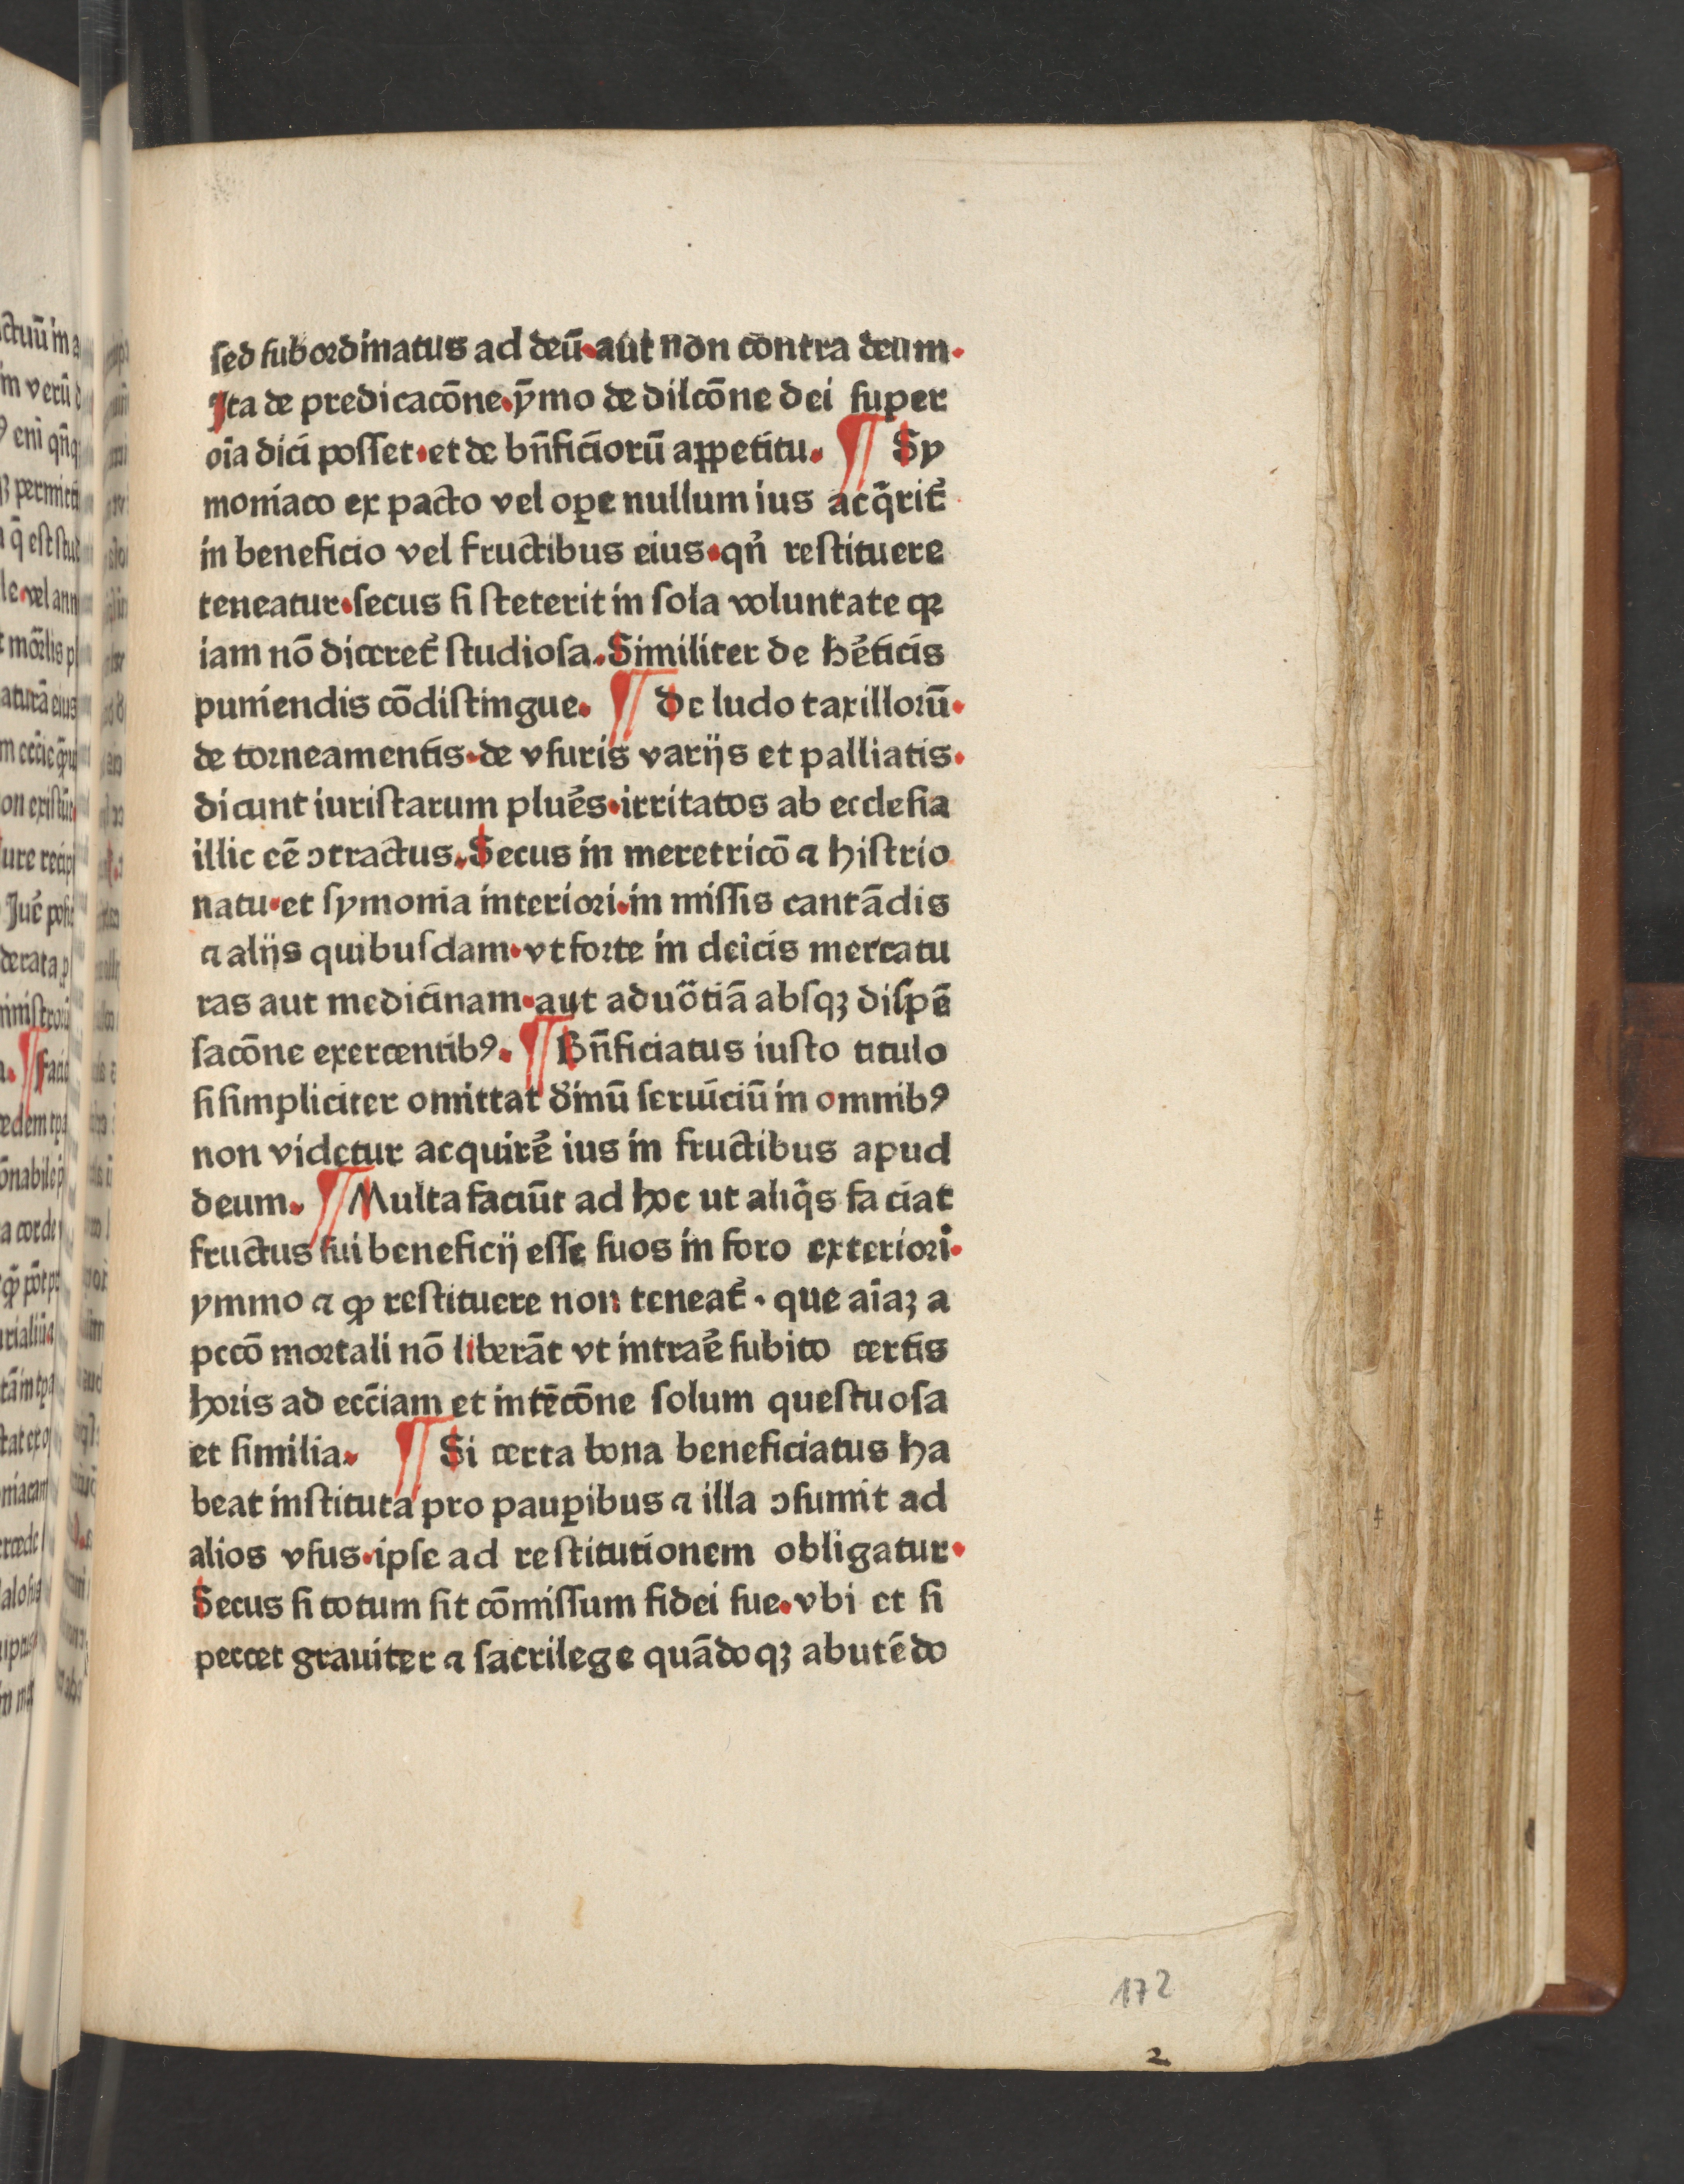 sed subordinatus ad deū·aut non contra deum·
Ita de predicacōne·ȳmo de dilcōne dei super
oīa dici posset·et de bn̄ficiorū appetitu. ¶ Sy
moniaco ex pacto vel oꝑe nullum ius acq̄rit᷑
in beneficio vel fructibus eius·qn̄ restituere
teneatur·secus si steterit in sola voluntate qꝛ
iam nō diceret᷑ studiosa. Similiter de hēticis
puniendis cōdistingue. ¶ De ludo taxillorū·
de torneamentis·de vsuris varijs et palliatis·
dicunt iuristarum pluēs·irritatos ab ecclesia
illic eē ↄtractus. Secus in meretricō ⁊ histrio
natu·et symonia interiori·in missis cantādis
⁊ alijs quibusdam·vt forte in cleīcis mercatu
ras aut medicinam·aut aduōtiā absqꝫ dispē
sacōne exercentibꝰ. ¶ Bn̄ficiatus iusto titulo
si simpliciter omittat diīnū seruiciū in omnibꝰ
non videtur acquirē ius in fructibus apud
deum. ¶ Multa faciūt ad hoc ut aliq̄s faciat
fructus sui beneficij esse suos in foro exteriori·
ymmo ⁊ ꝙ restituere non teneat᷑·que aīaꝫ a
pccō mortali nō liberāt vt intraē subito certis
horis ad ecc̄iam et intēcōne solum questuosa
et similia. ¶ Si certa bona beneficiatus ha
beat instituta pro pauꝑibus ⁊ illa ↄsumit ad
alios vsus·ipse ad restitutionem obligatur·
Secus si totum sit cōmissum fidei sue·vbi et si
peccet grauiter ⁊ sacrilege quādoqꝫ abutēdo
172
2